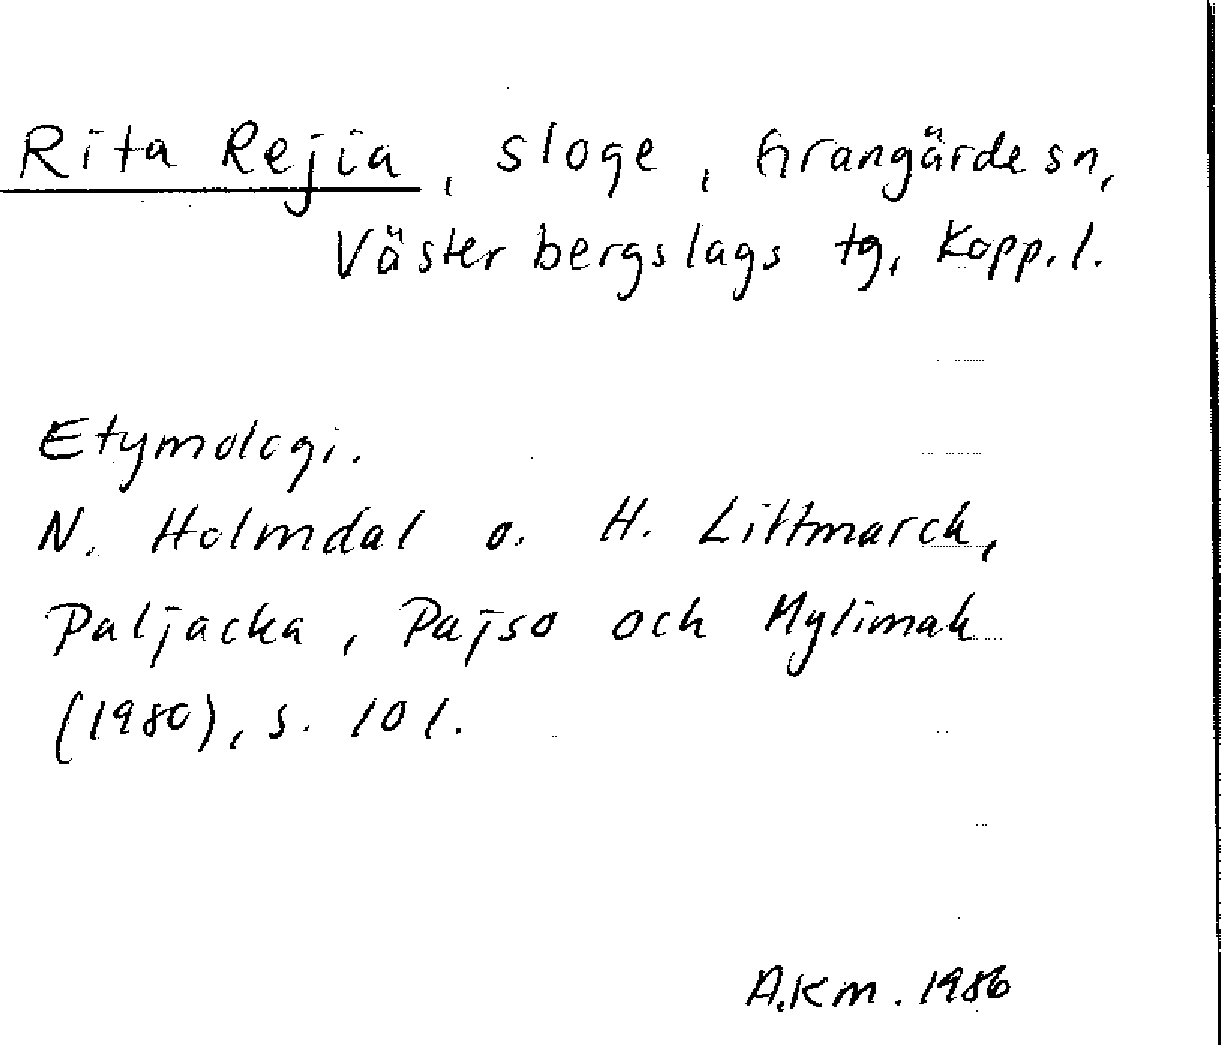 Rita Rejia, sloge, Grangärde sn,
Västerbergslags tg, Kopp. l.
Etymologi.
N. Holmdal o. H. Littmarck,
Paljacka, Pajso och Mylimak
(1980), s. 101.
A.Km. 1986